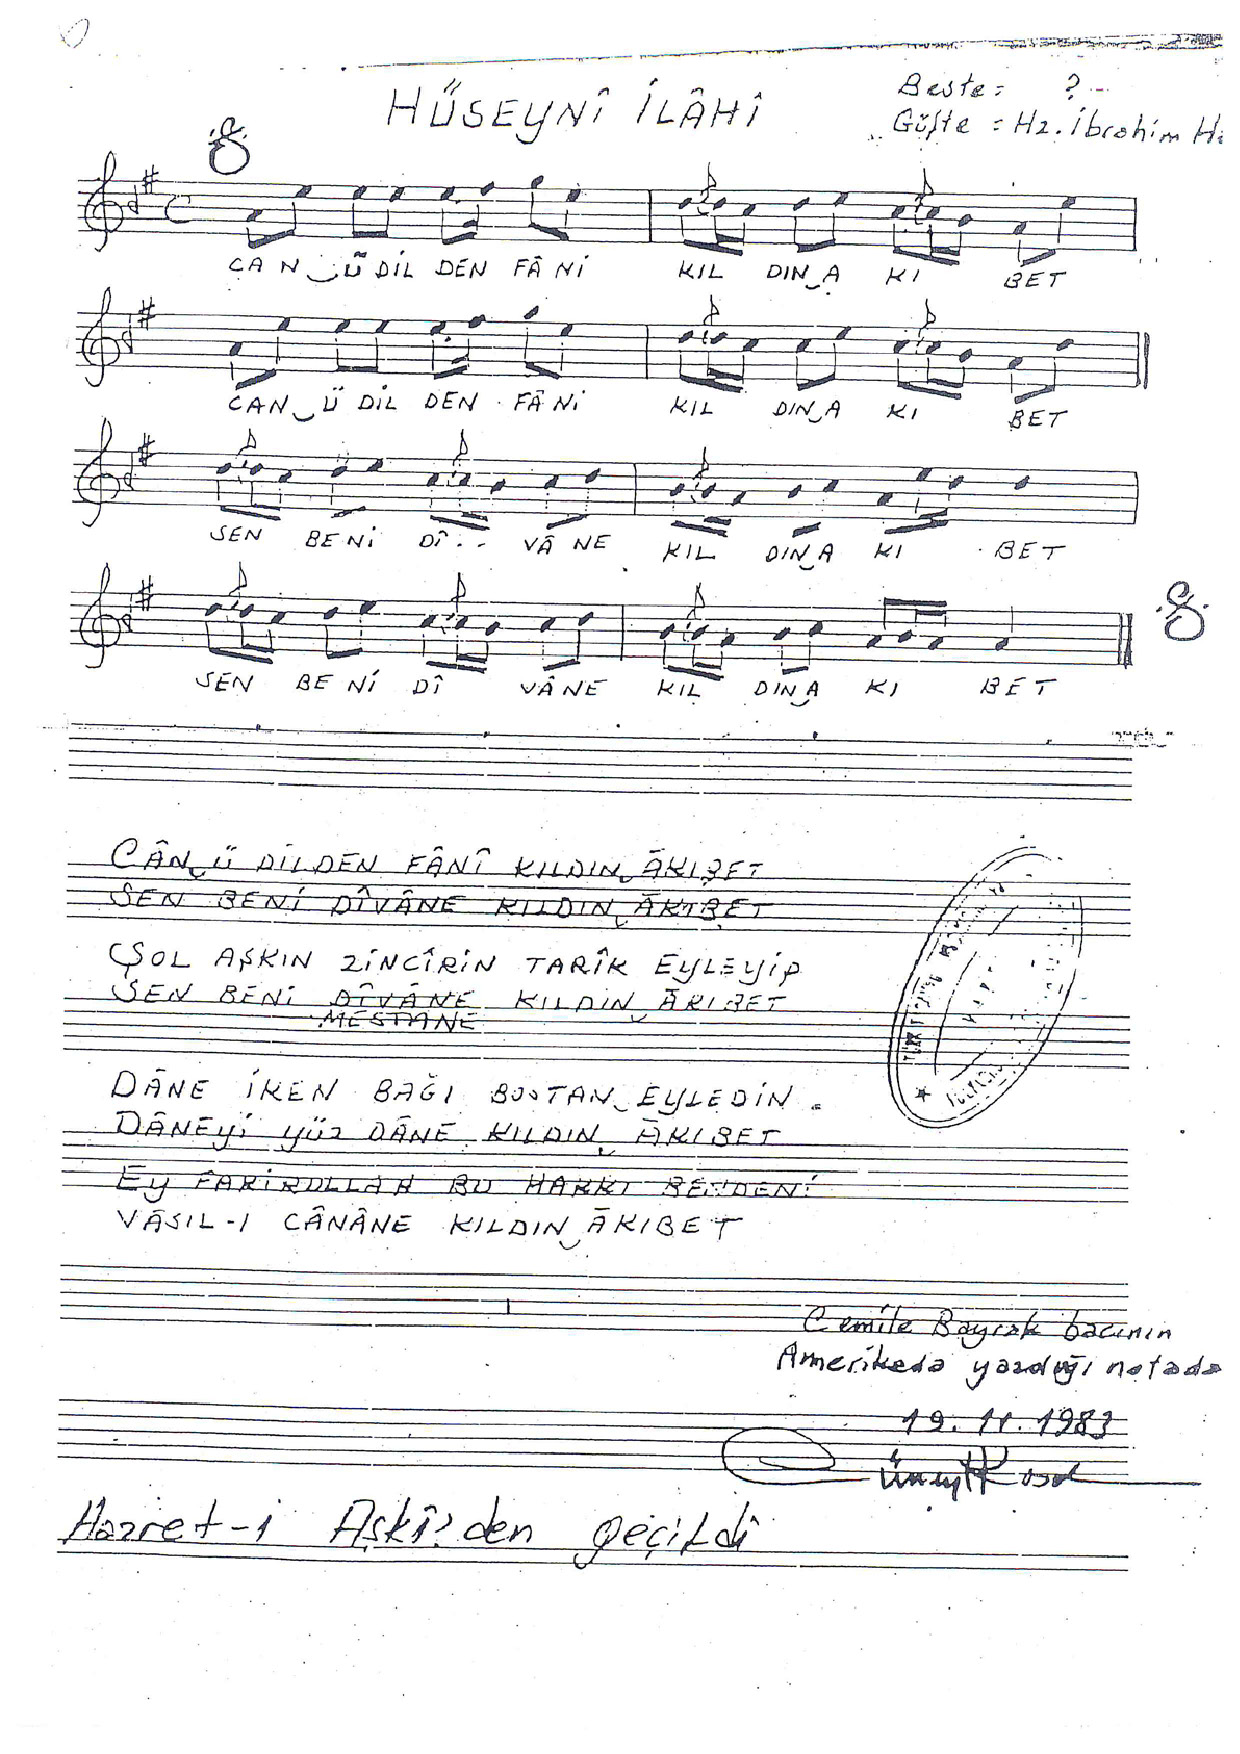 HÜSEYNÎ İLÂHİ
Beste = ?
Güfte = Hz. İbrahim H
CAN Ü DİL DEN FÂ Nİ KIL DIN A KI BET
CAN Ü DİL DEN FÂ Nİ KIL DIN A KI BET
SEN BE Nİ DÎ . . VÂ NE KIL DIN A KI BET
SEN BE Nİ DÎ VÂ NE KIL DIN A KI BET
CÂN Ü DİLDEN FÂNÎ KILDIN ÂKIBET
SEN BENİ DÎVÂNE KILDIN ÂKIBET
ŞOL AŞKIN ZİNCÎRİN TARÎK EYLEYİP
SEN BENİ DÎVÂNE KILDIN ÂKIBET
MESTANE
DÂNE İKEN BAĞI BOSTAN EYLEDİN .
DÂNEYİ YÜZ DÂNE KILDIN ÂKIBET
EY BU HAKKI BENDENİ
VÂSIL-I CÂNÂNE KILDIN ÂKIBET
Cemile Bayrak bacının
Amerikada yazdığı notada
19. 11. 1983
Hazret-i Aşkî'den geçildi